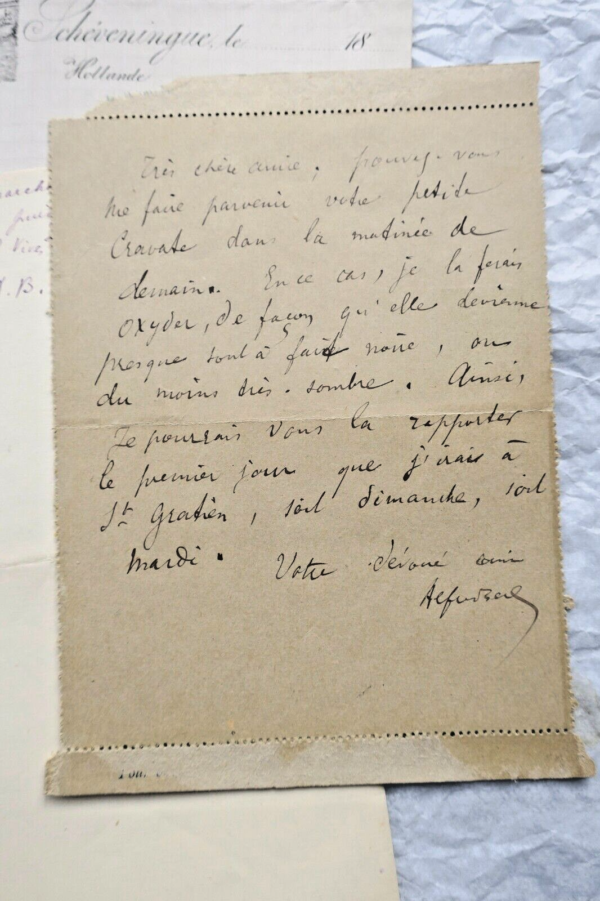 Schéveningue, le 18
Hollande
Très chère amie, pouvez-vous
me faire parvenir votre petite
Cravate dans la matinée de
demain. En ce cas, je la ferais
oxyder, de façon qu'elle devienne
presque tout à fait noire, ou
du moins très-sombre. Ainsi,
Je pourrais vous la rapporter
le premier jour que j'irais à
St Gratien, soit dimanche, soit
mardi.
Votre dévoué ami